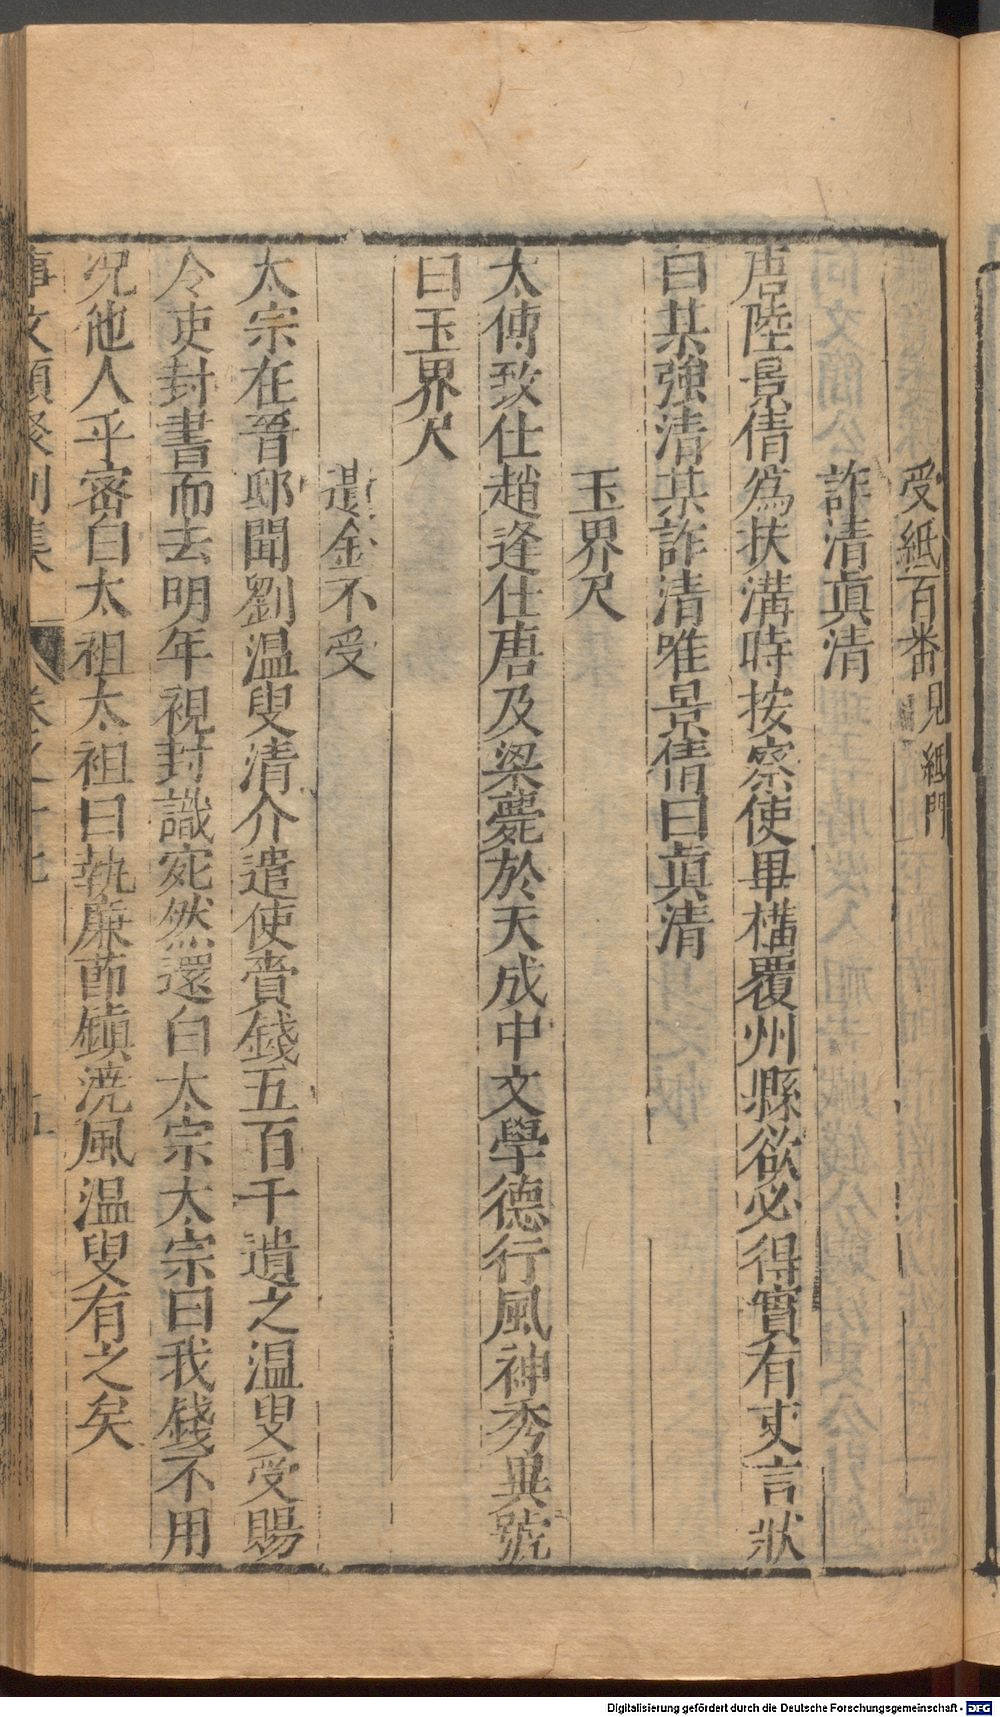 受紙百番見紙門
詐清眞清
唐陸景倩爲扶溝時按察使畢構覆州縣欲必得實有吏言狀
曰某強清某詐清唯景倩曰眞清
玉界尺
太傅致仕趙逢仕唐及梁薨於天成中文學德行風神秀異號
曰玉界尺
遺金不受
太宗在晉邸聞劉温叟清介遣使賫錢五百千遺之温叟受賜
令吏封書而去明年視封識宛然還白太宗太宗曰我錢不用
况他人乎密白太祖太祖曰執廉莭鎮澆風温叟有之矣
事文類聚别集 卷之廿七 五
Digitalisierung gefördert durch die Deutsche Forschungsgemeinschaft - DFG